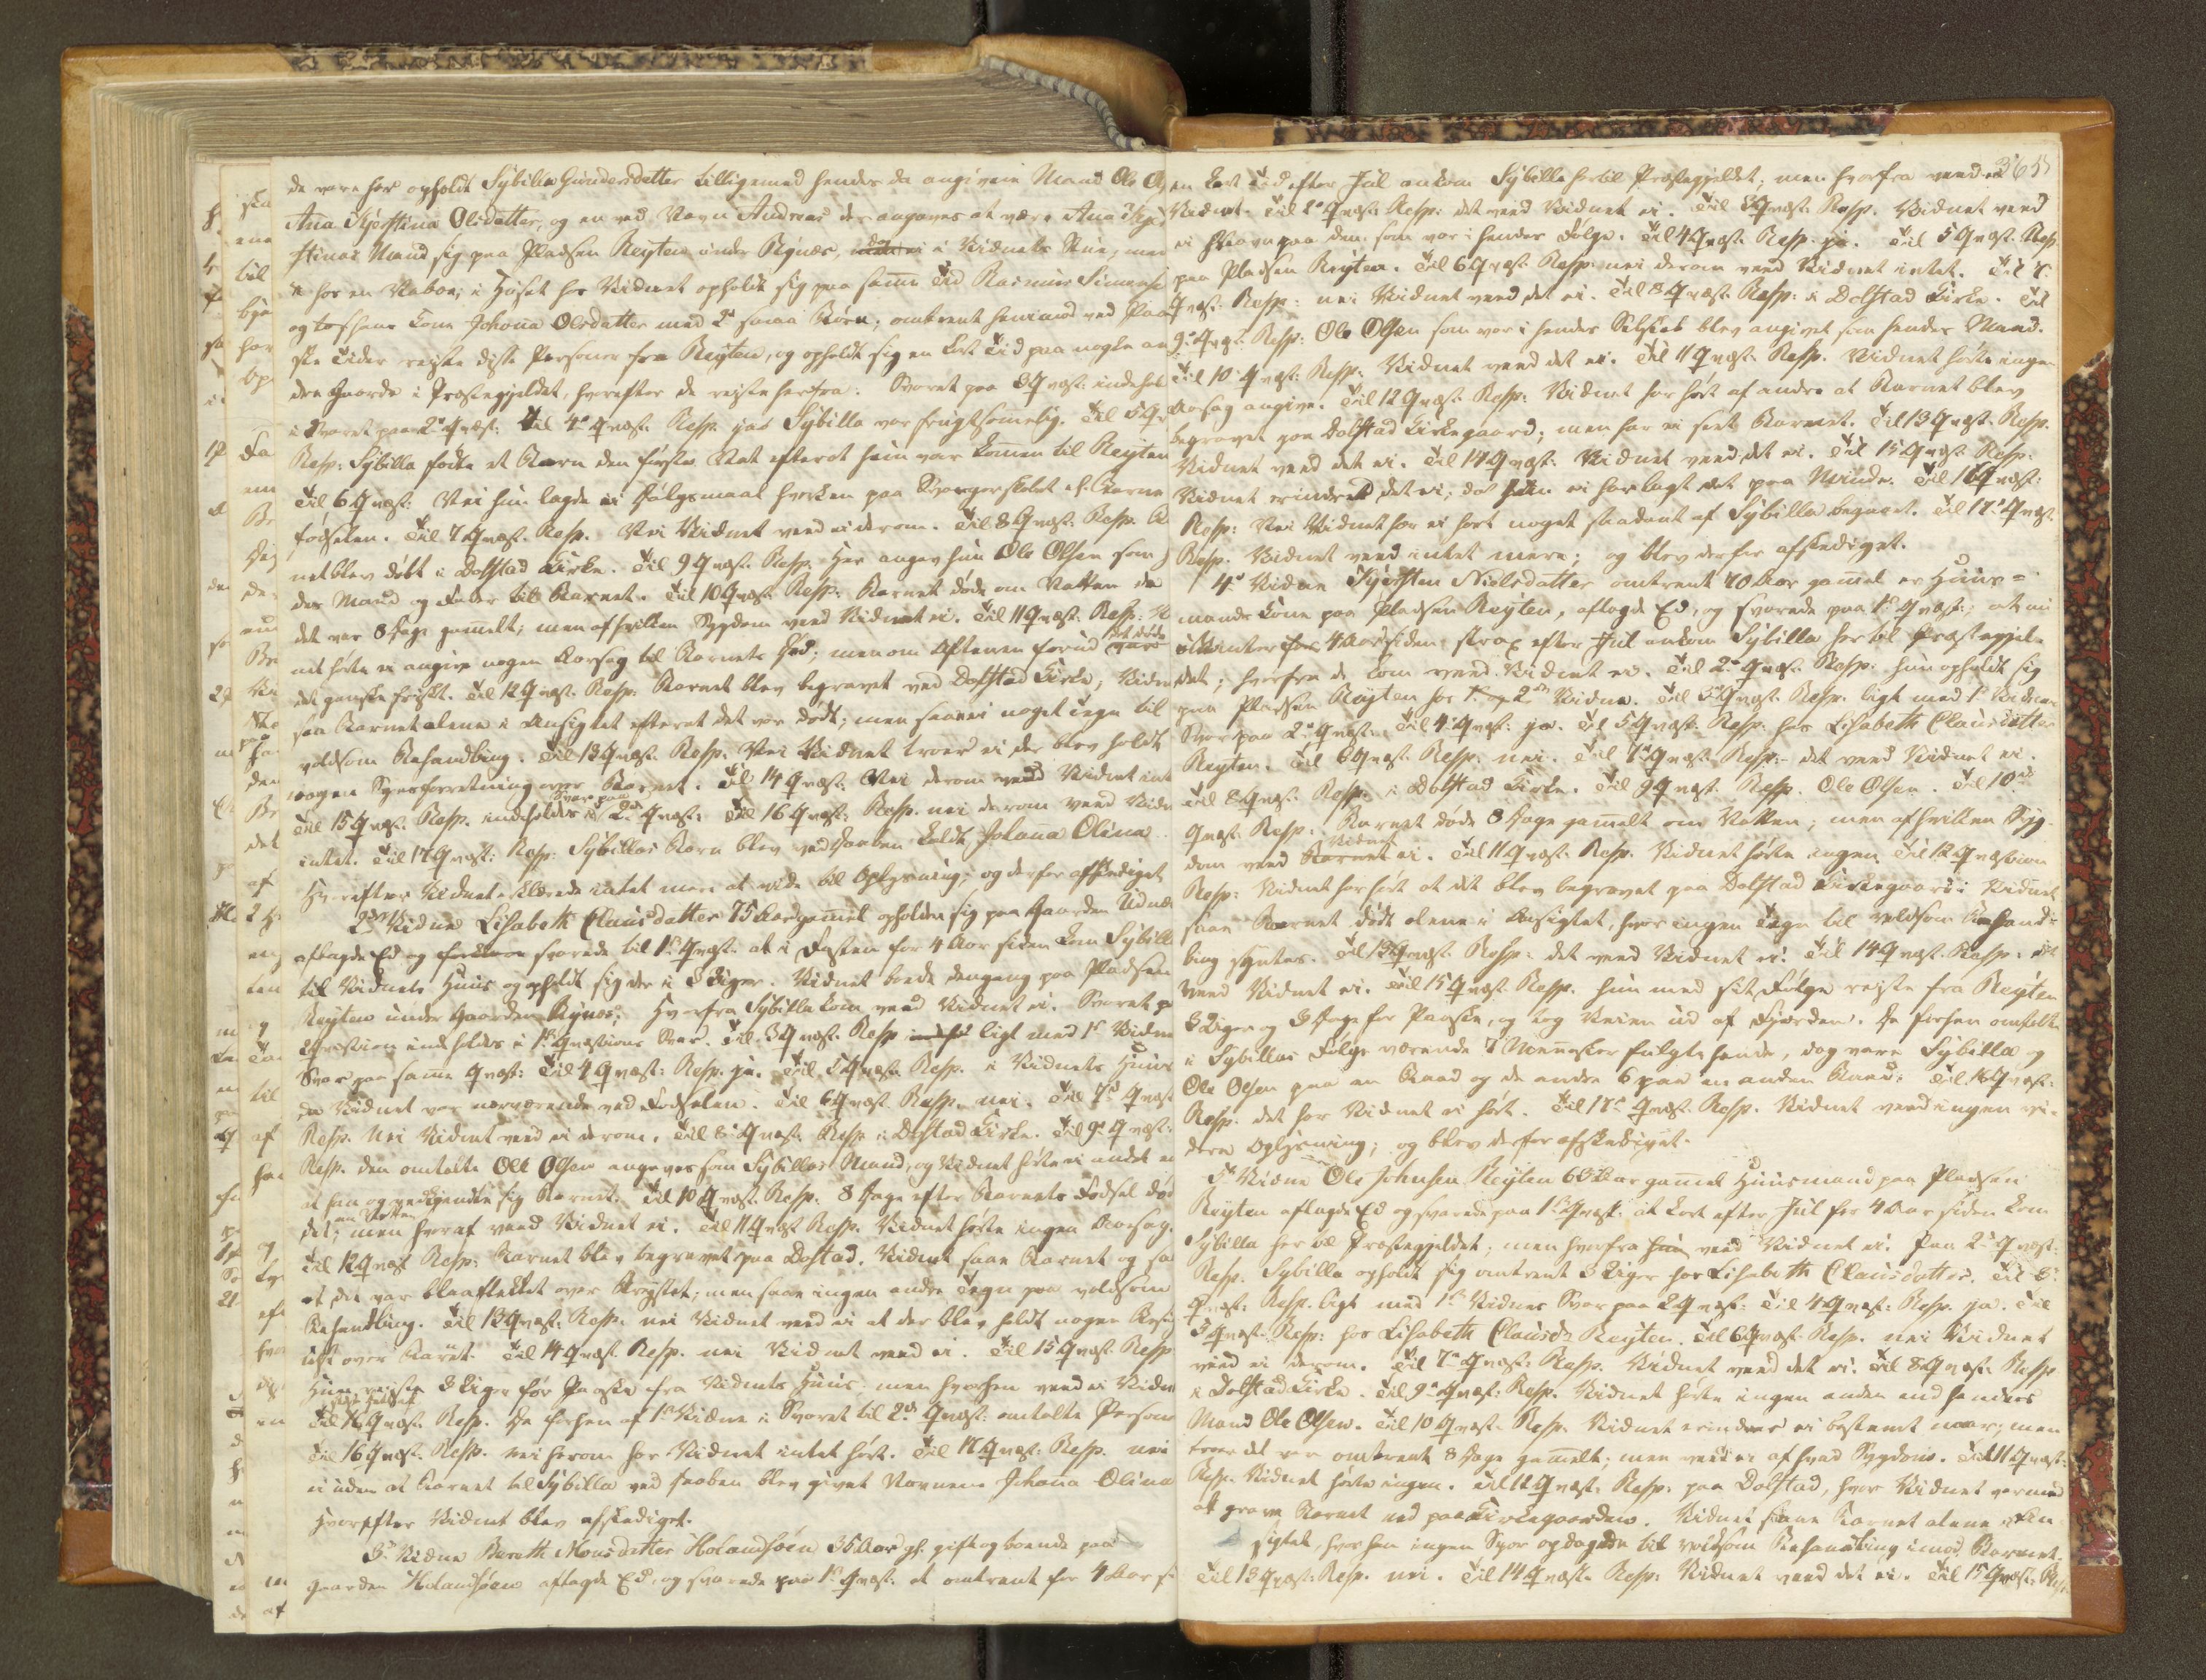 de vare her opholdt Sybilla Gundersdatter tilligemed hendes da angivne Mand Ole
Ana Kjerstina Olsdatter, og en ved Navn Andreas der angaves at være Ana
stinas Mand sig paa Pladsen Reyten under Rynes, i Vidnets Stue, men
hos en Naboe; i Huset hos Vidnet opholdt sig paa samme Tid Rasmus Simons
og tos hans Kone Johana Olsdatter med 2 smaa Børn; omtrent henimod ved Paa
ske Tider reiste disse Personer fra Reyten, og opholdt sig en kort Tid paa nogle an
dre Gaarde i Præstegjeldet, hvorefter de reiste herfra. Svaret paa 3 Qvæst: indehol
i Svaret paa 2 Qvæst: Til 4 Qvæst. Resp. ja Sybilla var frugtsommelig. Til 5 Qv
Resp: Sybilla fødte et Barn den første Nat efterat hun var kommen til Reyten
Til 6 Qvæst: Nei hun lagde ei Dølgsmaal hverken paa Svangerskabet el. Barne
fødselen. Til 7 Qvæst. Resp. Nei Vidnet veed ei derom. Til 8 Qvæst: Resp. Ba
net blev døbt i Dolstad Kirke. Til 9 Qvæst. Resp. Her angav hun Ole Olsen som
des Mand og Fader til Barnet. Til 10 Qvæst. Resp: Barnet døde om Natten da
det var 8 Dage gammelt; men af hvilken Sygdom veed Vidnet ei. Til 11 Qvæst. Resp:
net hørte ei angive nogen Aarsag til Barnets Død; men om Aftenen forud
det ganske friskt. Til 12 Qvæst. Resp: Barnet blev begravet ved Dolstad Kirke; Vidn
saa Barnet alene i Ansigtet efterat det var dødt; men saae ei noget Tegn til
voldsom Behandling. Til 13 Qvæst. Resp. Nei Vidnet troer ei der blev holdt
nogen Synsforretning over Barnet. Til 14 Qvæst: Nei derom veed Vidnet int
Til 15 Qvæst. Resp. indeholdes i Svar paa 2 Qvæst: Til 16 Qvæst: Resp. nei derom veed Vidn
intet. Til 17 Qvæst: Resp: Sybillas Barn blev ved Daaben kaldt Johana Olina.
Hvorefter Vidnet erklærede intet mere at vide til Oplysning; og derfor afskediget
2det Vidne Lisabeth Clausdatter 75 Aar gammel opholder sig paa Gaarden
aflagde Ed og svarede til 1 Qvæst: at i Fasten for 4 Aar siden kom Sybilla
til Vidnets Huus og opholdt sig der i 3 Uger. Vidnet boede dengang paa Pladsen
Reyten under Gaarden Rynes; Hvorfra Sybilla kom veed Vidnet ei. Svaret p
Qvæstion indeholdes i 1 Qvæstions Svar. Til 3 Qvæst. Resp ligt med 1 Vidnes
Svar paa samme Qvæst: Til 4 Qvæst: Resp. ja. Til 5 Qvæst. Resp. i Vidnets Huus
da Vidnet var nærværende ved Fødselen. Til 6 Qvæst. Resp. nei. Til 7 Qvæst
Resp. Nei Vidnet veed ei derom. Til 8 Qvæst: Resp i Dolstad Kirke. Til 9 Qvæst:
Resp. den omtalte Ole Olsen angaves som Sybillas Mand, og Vidnet hørte ei andet en
at han og vedkjendte sig Barnet. Til 10 Qvæst. Resp. 8 Dage efter Barnets Fødsel døde
det om Natten; men hvoraf veed Vidnet ei. Til 11 Qvæst Resp. Vidnet hørte ingen Aarsag.
Til 12 Qvæst Resp: Barnet blev begravet paa Dolstad. Vidnet saae Barnet og saa
at det var blaaflekket over Brystet; men saae ingen andre Tegn paa voldsom
Behandling. Til 13 Qvæst. Resp. nei Vidnet veed ei at der blev holdt nogen
over Barnet. Til 14 Qvæst. Resp. nei Vidnet veed ei. Til 15 Qvæst. Resp
Hun reiste 3 Uger før Paaske fra Vidnets Huus men hvorhen veed ei Vidn
Til 16 Qvæst. Resp. De forhen af 1 Vidne i Svaret til 2 Qvæst: omtalte Person
Til 16 Qvæst. Resp. nei herom har Vidnet intet hørt. Til 17 Qvæst: Resp. nei
ei uden at Barnet til Sybilla ved Daaben blev givet Navnene Johana Olina
Hvorefter Vidnet blev afskediget.
3 Vidne Bereth Monsdatter Holandsøen 36 Aar gl. gift og boende paa
Gaarden Holandsøen aflagde Ed, og svarede paa 1 Qvæst: at omtrent for 4 Aar s
365
en kort Tid efter Juul ankom Sybilla hertil Præstegjeldet; men hvorfra veed ei
Vidnet. Til 2 Qvæst: Resp: det veed Vidnet ei. Til 3 Qvæst. Resp. Vidnet veed
ei Navn paa den som var i hendes Følge. Til 4 Qvæst. Resp. ja. Til 5 Qvæst. Resp.
paa Pladsen Reyten. Til 6 Qvæst. Resp: nei derom veed Vidnet intet. Til 7
Qvæst: Resp: nei Vidnet veed det ei. Til 8 Qvæst. Resp: i Dolstad Kirke. Til
9 Qvæst. Resp: Ole Olsen som var i hendes Selskab blev angivet som hendes Mand.
Til 10 Qvæst: Resp: Vidnet veed det ei. Til 11 Qvæst. Resp. Vidnet hørte ingen
Aarsag angive. Til 12 Qvæst. Resp: Vidnet har hørt af andre at Barnet blev
begravet paa Dolstad Kirkegaard; men har ei seet Barnet. Til 13 Qvæst. Resp.
Vidnet veed det ei. Til 14 Qvæst: Vidnet veed det ei. Til 15 Qvæst. Resp:
Vidnet erindrer det ei, da hun ei har lagt det paa Minde. Til 16 Qvæst:
Resp: Nei Vidnet har ei hørt noget saadant af Sybilla begaaet. Til 17 Qvæst.
Resp. Vidnet veed intet mere; og blev derfor afskediget.
4 Vidne Kjersten Nielsdatter omtrent 70 Aar gammel er Huus=
mands Kone paa Pladsen Reyten, aflagde Ed, og svarede paa 1 Qvæst; at nu
i Vinter for 4 Aar siden strax efter Juul ankom Sybilla her til Præstegjel
det; hvorfra de kom veed Vidnet ei. Til 2 Qvæst. Resp. hun opholdt sig
paa Pladsen Reyten hos 2 Vidne. Til 3 Qvæst. Resp. ligt med 1 Vidnes
Svar paa 2 Qvæst. Til 4 Qvæst: ja. Til 5 Qvæst. Resp. hos Lisabeth Clausdatter
Reyten. Til 6 Qvæst. Resp: nei. Til 7 Qvæst: Resp: det veed Vidnet ei.
Til 8 Qvæst. Resp: i Dolstad Kirke. Til 9 Qvæst. Resp. Ole Olsen. Til 10
Qvæst. Resp: Barnet døde 8 Dage gammelt om Natten; men af hvilken Syg
dom veed Vidnet ei. Til 11 Qvæst. Resp. Vidnet hørte ingen. Til 12 Qvæstion
Resp: Vidnet har hørt at det blev begravet paa Dolstad Kirkegaard: Vidnet
saae Barnet dødt alene i Ansigtet, hvor ingen Tegn til voldsom Behand=
ling syntes. Til 13 Qvæst. Resp: det veed Vidnet ei. Til 14 Qvæst. Resp: det
veed Vidnet ei. Til 15 Qvæst. Resp. hun med sit Følge reiste fra Reyten
3 Uger og 3 Dage før Paaske, og tog Veien ud af Fjorden. De forhen omtalte
i Sybillas Følge værende 7 Mennesker fulgte hende, dog vare Sybilla og
Ole Olsen paa en Baad og de andre 6 paa en anden Baad. Til 16 Qvæst:
Resp. det har Vidnet ei hørt. Til 17 Qvæst. Resp. Vidnet veed ingen vi=
dere Oplysning; og blev derfor afskediget.
5 Vidne Ole Johnsen Reyten 60 Aar gammel Huusmand paa Pladsen
Reyten aflagde Ed og svarede paa 1 Qvæst: at kort efter Juul for 4 Aar siden kom
Sybilla her til Præstegjeldet; men hvorfra hun veed Vidnet ei. Paa 2 Qvæst:
Resp. Sybilla opholdt sig omtrent 3 Uger hos Lisabeth Clausdatter. Til 3
Qvæst: Resp. ligt med 1 Vidnes Svar paa 2 Qvæst: Til 4 Qvæst: Resp. ja. Til
5 Qvæst: Resp: hos Lisabeth Clausd. Reyten. Til 6 Qvæst. Resp. nei Vidnet
veed ei derom. Til 7 Qvæst. Resp. Vidnet veed det ei. Til 8 Qvæst. Resp
i Dolstad Kirke. Til 9 Qvæst. Resp. Vidnet hørte ingen anden end hendes
Mand Ole Olsen. Til 10 Qvæst. Resp. Vidnet erindrer ei bestemt naar; men
troer det var omtrent 8 Dage gammelt; men veed ei af hvad Sygdom. Til 11 Qvæst:
Resp. Vidnet hørte ingen. Til 12 Qvæst. Resp. paa Dolstad, hvor Vidnet var med
at grave Barnet ned paa Kirkegaarden. Vidnet saae Barnet alene i An
sigtet, hvor han ingen Spor opdagede til voldsom Behandling imod Barnet.
Til 13 Qvæst. Resp. nei. Til 14 Qvæst. Resp: Vidnet veed det ei. Til 15 Qvæst: Resp.